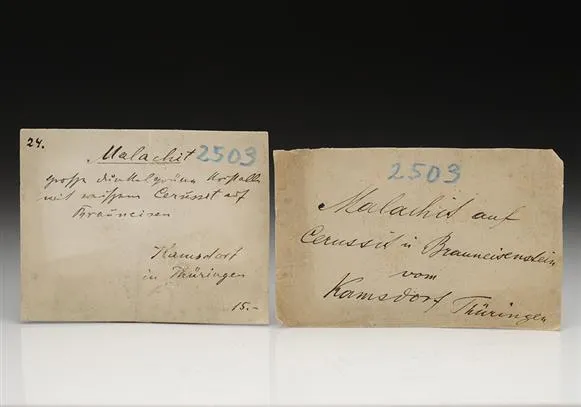 24.
Malachit 2503
große dunkelgrüne Kristalle
mit weißem Cerussit auf
Brauneisen
Kamsdorf
in Thüringen
15.-
2503
Malachit auf
Cerussit u Brauneisenstein
vom
Kamsdorf Thüringen